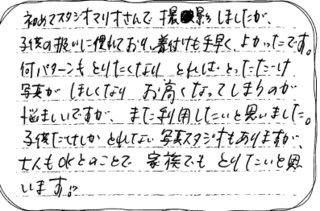 初めてスタジオマリオさんで撮影しましたが、
子供の扱いに慣れており、着付けも手早く、よかったです。
何パターンもとりたくなり とればとっただけ
写真がほしくなり お高くなってしまうのが
悩ましいですが、また利用したいと思いました。
子供だけしかとれない写真スタジオもありますが、
大人もOKとのことで 家族でも とりたいと思
います。